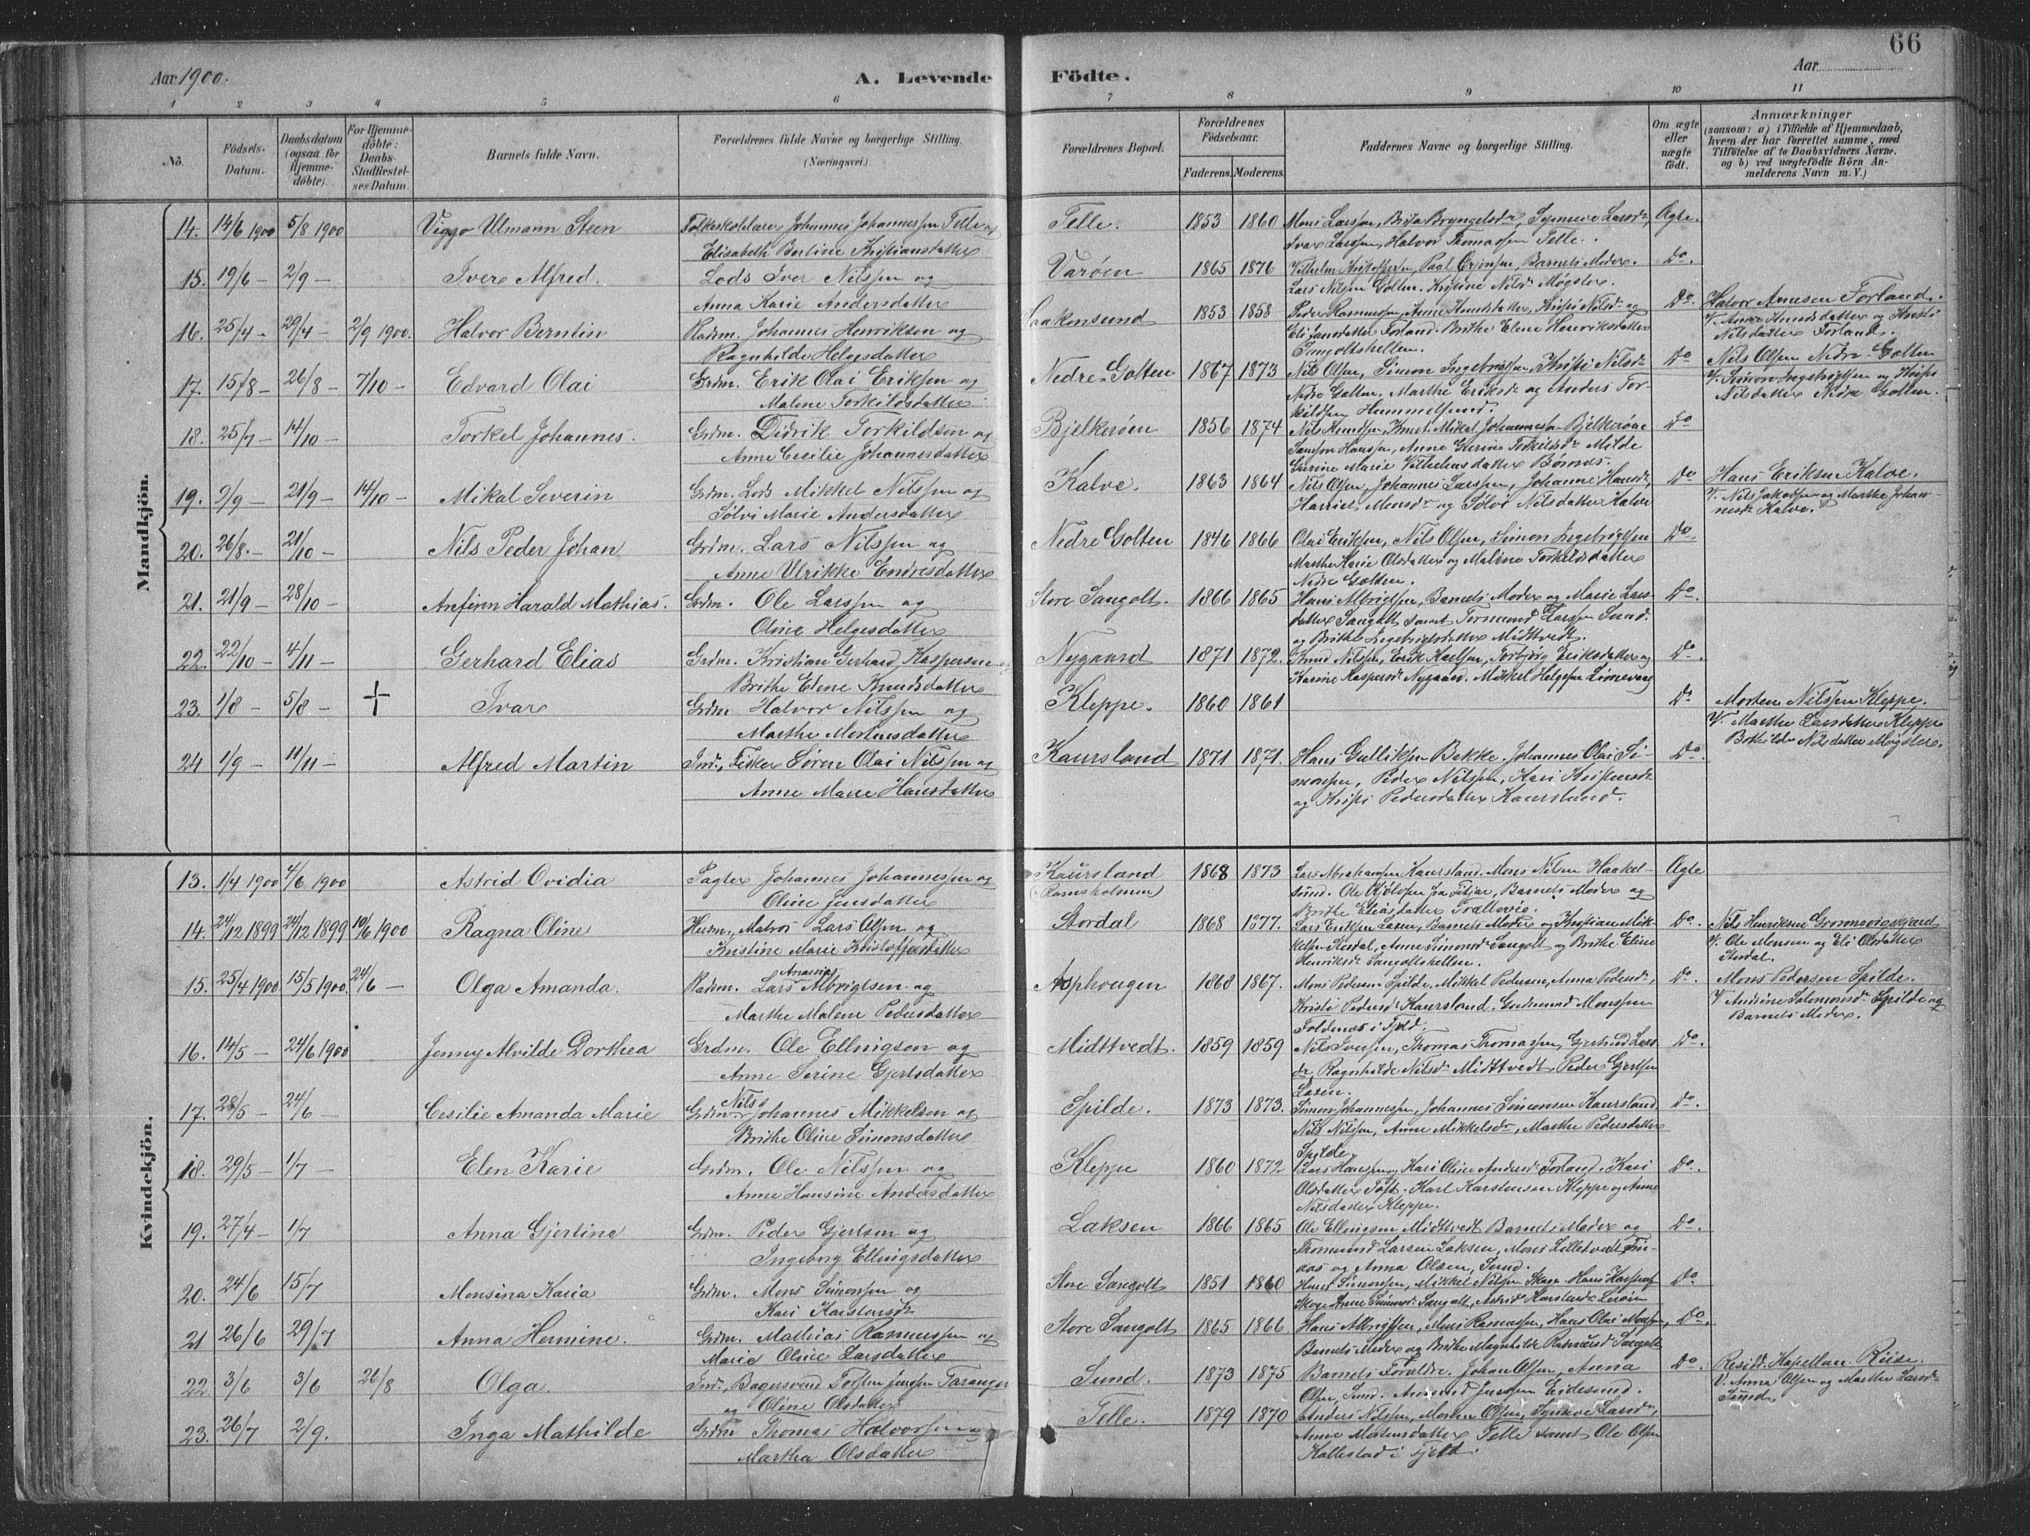 66
Aar 1900.
A. Levende
Födte.
Aar
1 2 3 4 5 6 7 8 9 10 11
No.
Födsels-Datum.
Daabsdatum (ogsaa for Hjemmedöbte).
For Hjemmedöbte: Daabs-Stadfæstelses Datum.
Barnets fulde Navn.
Forældrenes fulde Navne og borgerlige Stilling. (Næringsvei.)
Forældrenes Bopæl.
Forældrenes Födselsaar.
Faderens. Moderens.
Faddernes Navne og borgerlige Stilling.
Om ægte eller uægte födt.
Anmærkninger
(saasom: a) i Tilfælde af Hjemmedaab, hvem der har forrettet samme, med Tilföielse af to Daabsvidners Navne. og b) ved uægtefödte Börn Anmelderens Navn m. V.)
Mandkjön.
14. 14/6 1900 5/8 1900 Viggo Ulmann Steen Folkeskolelærer Johannes Johannessen Telle og
Elisabeth Bertine Kristiansdatter
Telle. 1853 1860 Mons Larssen, Brita Bryngelsdr, Synneve Larsdr, Ægte
Ivar Larssen, Halvor Thomassen Telle.
15. 19/6 — 2/9 — Iver Alfred. Lods Iver Nilssen og
Anna Karie Andersdatter
Varöen 1865 1876 Vilhelm Kristoffersen, Paal Eriksen, Barnets Moder. Do.
Lars Nilsen Golten. Kristine Nilsdr Møgster.
16. 25/4 — 29/4 — 2/9 1900. Halvor Berntin Radm. Johannes Henriksen og
Ragnhilde Helgesdatter
1853 1858 Peder Rasmussen, Anne Knudsdatter, Kristi Nilsdr og Do.
Eli Jansdatter Forland. Brithe Elene Henriksdatter
Sangoltshellen.
Halvor Arnesen Forland.
V. Anne Knudsdatter og Kristi
Nilsdatter Forland.
17. 15/8 — 26/8 — 7/10 — Edvard Olai Grdm. Erik Olai Eriksen og
Malene Torkildsdatter
Nedre Golten 1867 1873 Nils Olsen, Simon Ingebrigtsen, Kristi Nilsdr Do
Nedre Golten, Marthe Eriksdr og Anders Tor-
kildsen Hummelsund.
Nils Olsen Nedre Golten
V. Simon Ingebrigtsen og Kristi
Nilsdatter Nedre Golten.
18. 25/7 — 14/10 — Torkel Johannes. Grdm. Didrik Torkildsen og
Anne Cecilie Johannesdatter
Bjelkeröen 1856 1874 Nils Knudsen, Knut Mikal Johannesen Bjelkeröen Do
Samson Hanssen, Anne Gurine Torkildsdr Milde
Gurine Marie Vilhelmsdatter Børnes.
19. 2/9 — 21/9 — 14/10 — Mikal Severin Grdm. Lods Mikkel Nilssen og
Sølvi Marie Andersdatter
Kalve. 1863 1864 Nils Olsen, Johannes Larssen, Johanne Hansdr, Do
Harriet Monsdr og Sølvi Nilsdatter Kalve
Hans Eriksen Kalve.
V. Nils Jakobsen og Marthe Johan-
nesdr Kalve.
20. 26/8. — 21/10 — Nils Peder Johan Grdm. Lars Nilssen og
Anne Ulrikke Endresdatter
Nedre Golten 1846 1866 Olai Eriksen, Nils Olsen, Simon Ingebrigtsen Do.
Marthe Karie Olsdatter og Malene Torkildsdatter
Nedre Golten.
21. 21/9 — 28/10 — Anfinn Harald Mathias. Grdm. Ole Larssen og
Oline Helgesdatter
Store Sangolt. 1866 1865 Hans Albrigtsen, Barnets Moder og Marie Lars- Do.
datter Sangolt samt Tormund Larssen Sund.
og Brithe Ingebrigtsdatter Midtvedt.
22. 22/10 — 4/11 — Gerhard Elias Grdm. Kristian Gerhard Kaspersen og
Brithe Elene Knudsdatter
Nygaard 1871 1872. Knud Nilssen, Erik Karlsen, Torbjørg Eriksdatter og Do
Karine Kaspersdr Nygaard. Mikkel Helgesen Limevaag
23. 1/8 — 5/8 — + Ivar Grdm Halvor Nilssen og
Marthe Mortensdatter
Kleppe. 1860 1861 Do
Morten Nilssen Kleppe.
V. Marthe Larsdatter Kleppe
Bothilde Nilsdatter Møgster.
24 1/9 — 11/11 — Alfred Martin Ind., Fisker Sören Olai Nilssen og
Anne Marie Hansdatter
Kaursland 1871 1871. Hans Gulliksen Bakke, Johannes Olai Si- Do.
monsen, Peder Nilsen, Kari
og Kristi Pedersdatter Kaursland.
Kvindekjön.
13. 1/4 1900 4/6 1900 Astrid Ovidia Pagter Johannes Johannessen og
Oline Jensdatter
Kaursland 1868 1873 Lars Abrahamsen Kaursland. Mons Nilsen Haakel- Ægte
(Ramsholmen) sund. Ole Kjølsen fra Fitjar, Barnets Moder og
Brithe Eliasdatter Trællevig.
14. 24/12 1899 24/12 1899 10/6 1900 Ragna Oline Husm., Matros Lars Olsen og
Kristine Marie Kristoffersdatter
Stordal 1868 1877. Lars Eriksen Laxen, Barnets Moder og Kristiane Mik- Do.
kelsen Stordal, Anne Simonsdr Sangolt og Brithe Eline
Henriksdr Sangoltshellen.
Nils Henriksen Grønnevigskjæret
V. Ole Monsen og Eli Olsdatter
Stordal.
15. 25/4 1900 15/5 1900. 24/6 — Olga Amanda. Radm. Lars Ananias Albrigtsen og
Marthe Malene Pedersdatter
Asphougen 1868 1867. Mons Pedersen Spilde, Mikkel Pedersen, Anna Pedersdr, Do.
Kristi Pedersdr Kaursland. Gudmund Monssen
Foldnæs i Fjeld.
Mons Pedersen Spilde.
V. Andrine Salomonsdr Spilde og
Barnets Moder.
16. 14/5 — 24/6 1900 Jenny Alvilde Dorthea Grdm. Ole Ellingsen og
Anne Serine Gjertsdatter
Midttvedt. 1859 1859 Nils Iversen, Thomas Thomassen, Gjertrud Lars- Do.
dr, Ragnhilde Nilsdr Midttvedt. Peder Gjertsen
Laxen.
17. 28/5 — 24/6 — Cecilie Amanda Marie Grdm Nils Johannes Mikkelsen og
Brithe Oline Simonsdatter
Spilde. 1873 1873. Simon Johannessen, Johannes Simonsen Kaursland. Do.
Nils Nilssen, Anne Mikkelsdr, Marthe Pedersdatter
Spilde.
18. 29/5 — 1/7 — Elen Karie Grdm. Ole Nilssen og
Anne Hansine Andersdatter
Kleppe 1860 1872. Lars Hanssen og Kari Oline Andersdr Forland. Kari Do.
Olsdatter Toft. Karl Karstensen Kleppe og Anne
Nilsdatter Kleppe.
19. 27/4 — 1/7 — Anna Gjertine Grdm. Peder Gjertsen og
Ingeborg Ellingsdatter
Laksen 1866 1865 Ole Ellingsen Midttvedt Barnets Moder og Do.
Thormund Larsen Laksen, Mons Lilletvedt Fin-
aas og Anna Olsen, Sund.
20. 24/6 15/7 Monsina Karia Grdm. Mons Simonsen og
Kari Karstensdr
Store Sangolt 1851 1860 Knut Simonsen, Mikkel Nilsen Skoge, Hans Do
Skoge Anne Simonsdr Sangolt, Astrid
21 26/6 29/7 Anna Hermine. Grdm. Mathias Rasmussen og
Marie Oline Larsdatter
Store Sangolt 1865 1866 Hans Albrigtsen, Mons Rasmussen, Hans Olai Monsen, Do.
Barnets Moder og Brithe Magnhilde Rasmusdr Sangolt
22. 3/6 3/6 26/8 Olga. Ind., Bagersvend Torsten Jensen Taranger
og Oline Olsdatter
Sund 1873 1875 Barnets Forældre. Johan Olsen, Anna Do
Olsen, Sund. Eidesund.
Resid. Kapellan Riise.
V. Anna Olsen og Marthe Larsdr
Sund.
23. 26/7 2/9. Inga Mathilde Grdm Thomas Halvorssen og
Martha Olsdatter
Telle. 1879 1870 Anders Nilsen, Morten Olsen, Synneve Larsdr,
Anne Mortensdatter Telle samt Ole Olsen
Kallestad i Fjeld.